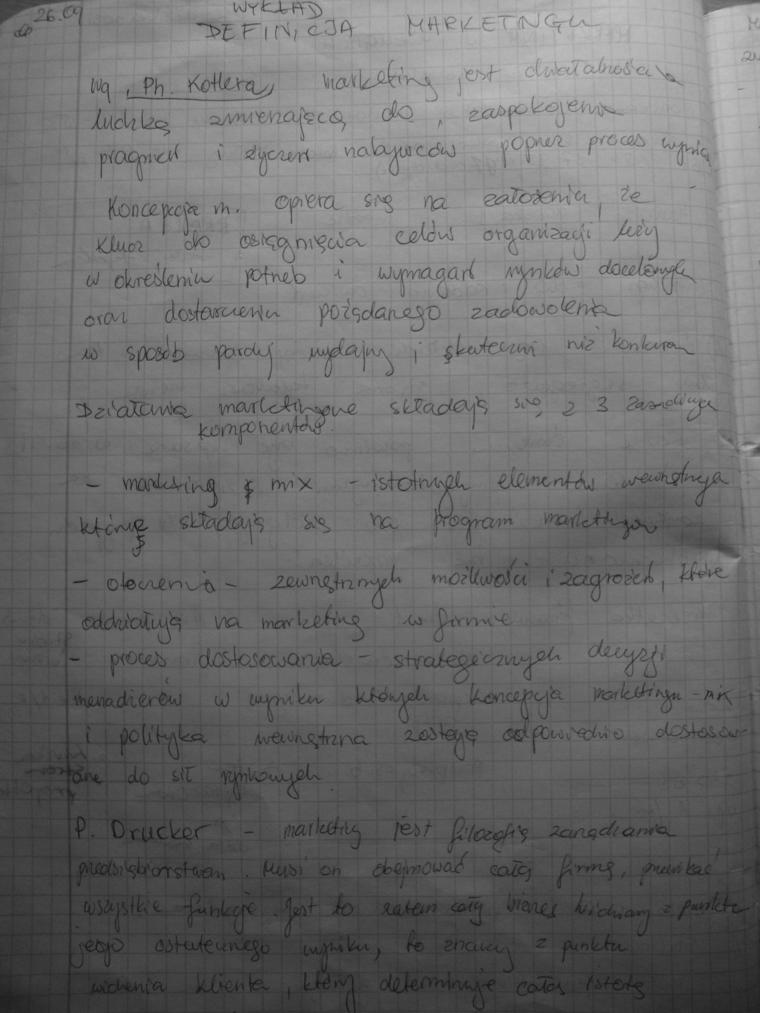 26.09 WYKŁAD
DEFINICJA MARKETINGU
wg. Ph. Kotlera, marketing jest działalnością
ludzką zmierzającą do zaspokojenia
pragnień i życzeń nabywców poprzez proces wymia
Koncepcja m. opiera się na założeniu, że
klucz do osiągnięcia celów organizacji leży
w określeniu potrzeb i wymagań rynków docelowych
oraz dostarczeniu pożądanego zadowolenia
w sposób bardziej wydajny i skuteczny niż konkuren
Działania marketingowe składają się z 3 zasadniczych
komponentów
- marketing mix - istotnych elementów wewnętrznych
które składają się na program marketingowy
- otoczenia - zewnętrznych możliwości i zagrożeń, które
oddziałują na marketing w firmie
- proces dostosowania - strategicznych decyzji
menadżerów w wyniku których koncepcja marketingu-mix
i polityka wewnętrzna zostają odpowiednio dostosow-
ane do sił rynkowych.
P. Drucker - marketing jest filozofią zarządzania
przedsiębiorstwem. Musi on obejmować całą firmę, przenikać
wszystkie funkcje. Jest to zatem cały biznes widziany z punktu
jego ostatecznego wyniku, to znaczy z punktu
widzenia klienta, który determinuje całą istotę